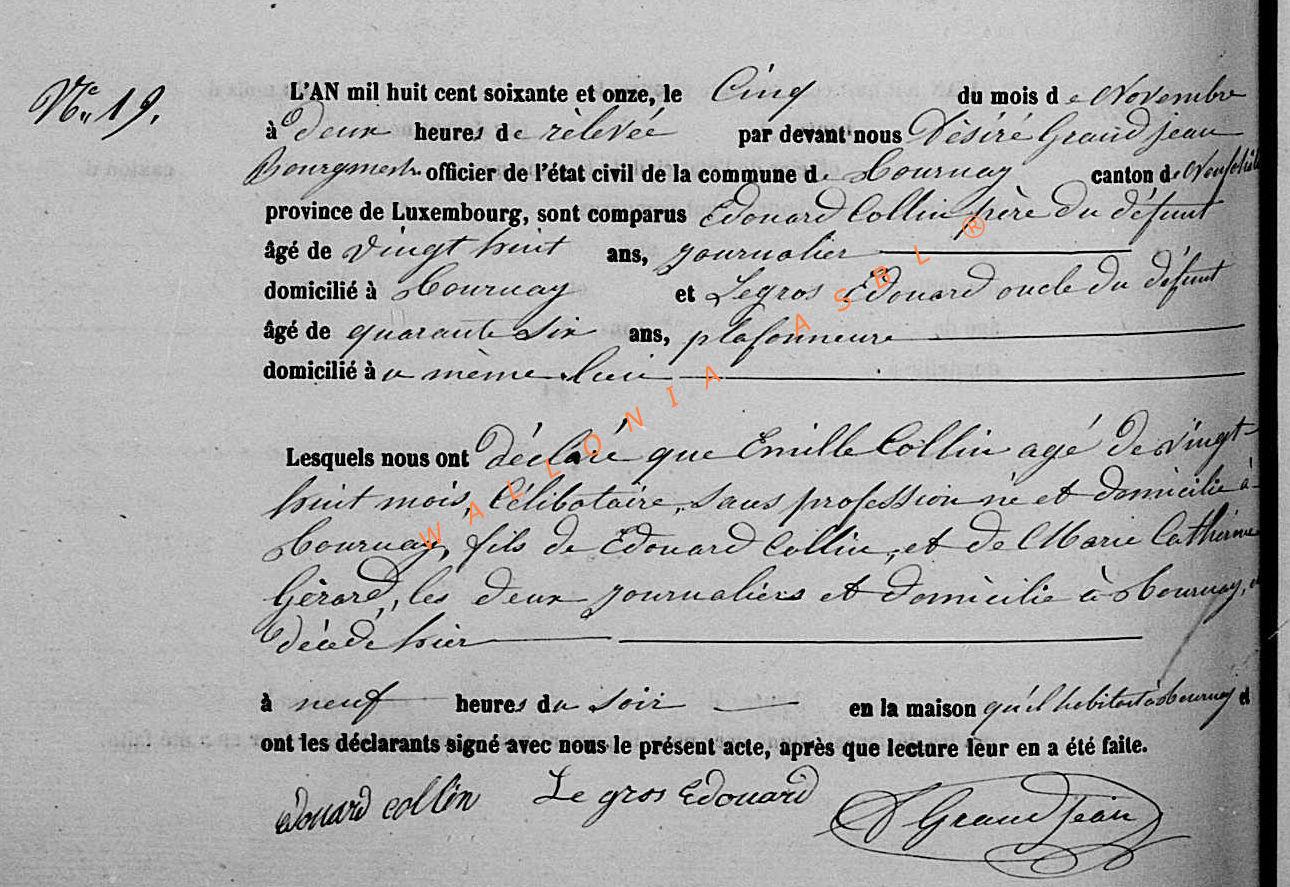 N° 19.
L'AN mil huit cent soixante et onze, le Cinq du mois de Novembre
à deux heures de rèlevée par devant nous Dèsiré Grandjean
Bourgmestre officier de l'état civil de la commune de Tournay canton de Neufchâteau
province de Luxembourg, sont comparus Edouard Collin père du défunt
âgé de vingt huit ans, journalier
domicilié à Tournay et Legros Edouard oncle du défunt
âgé de quarante six ans, plafonneure
domicilié à u mème lieu
Lesquels nous ont déclaré que Emille Collin agé de vingt
huit mois, Célibataire, sans profession nè et domicilié à
Tournay, fils de Edouard Collin, et de Marie Catherine
Gèrard, les deux journaliers et domicilie à Tournay,
décèdè hier
à neuf heures du soir en la maison qu'il habitait à Tournay et
ont les déclarants signé avec nous le présent acte, après que lecture leur en a été faite.
edouard collin Le gros Edouard D Grandjean
WALLONIA ASBL ®